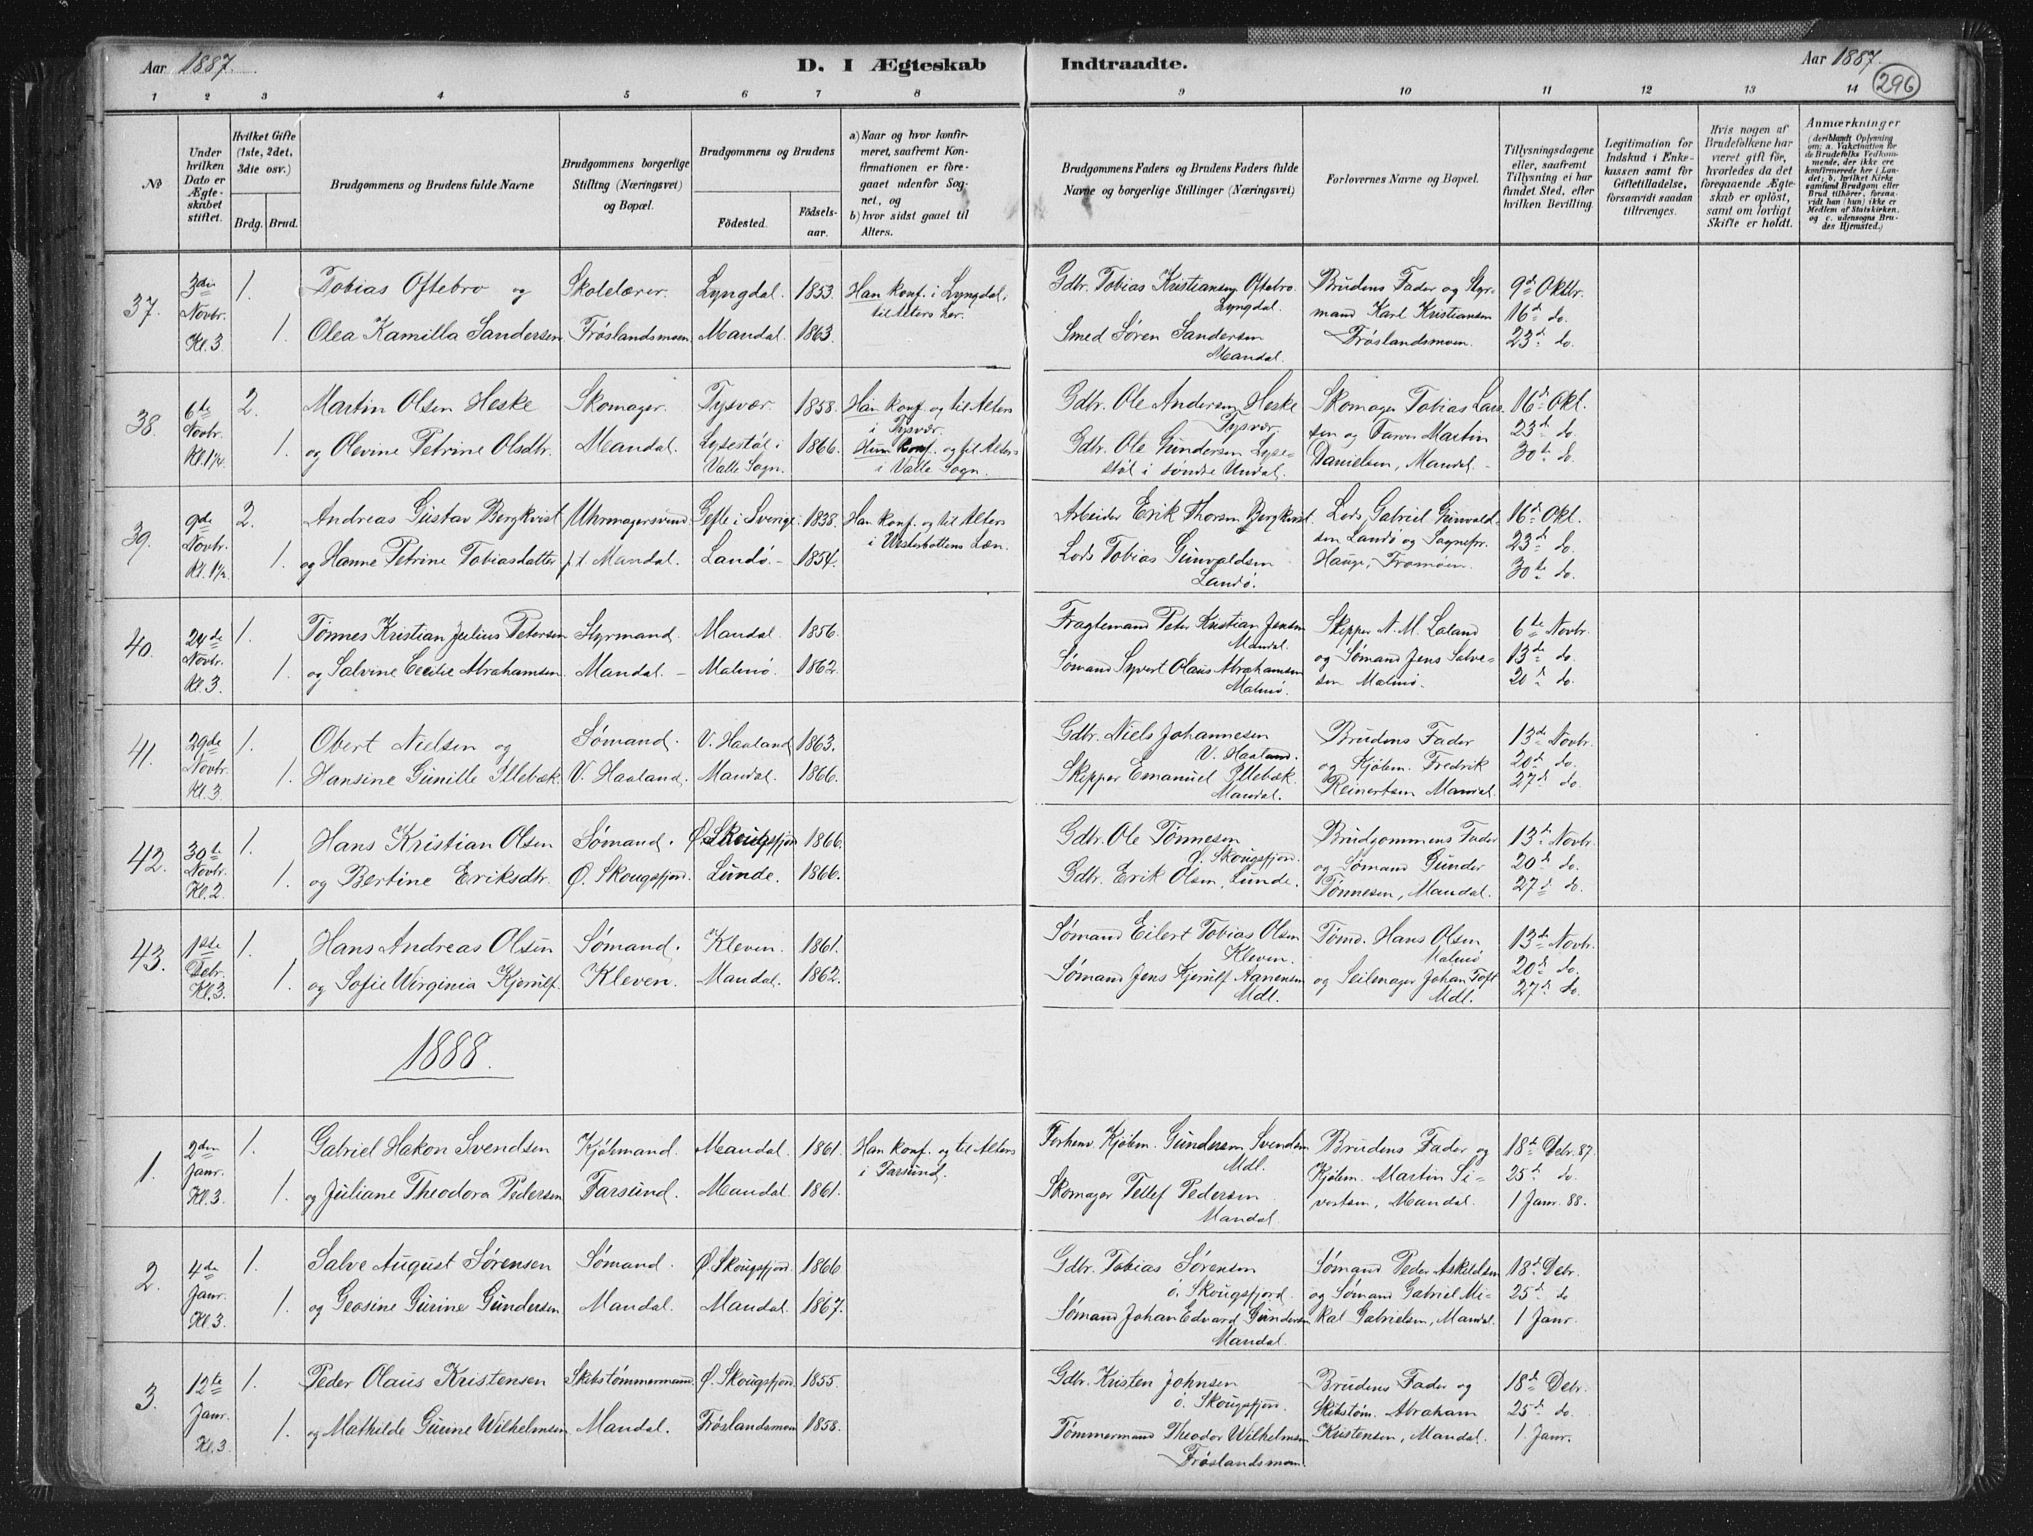 Aar 1887. D. I Ægteskab Indtraadte. Aar 1887.
296
1 2 3 4 5 6 7 8 9 10 11 12 13 14
No
Under hvilken Dato er Ægteskabet stiftet.
Hvilket Gifte (1ste, 2det, 3die osv.)
Brdg. Brud.
Brudgommens og Brudens fulde Navne
Brudgommens borgerlige Stilling (Næringsvei) og Bopæl.
Brudgommens og Brudens
Födested. Födsels-aar.
a) Naar og hvor konfirmeret, saafremt Konfirmationen er foregaaet udenfor Sognet, og
b) hvor sidst gaaet til Alters.
Brudgommens Faders og Brudens Faders fulde Navne og borgerlige Stillinger (Næringsvei)
Forlovernes Navne og Bopæl.
Tillysningsdagene eller, saafremt Tillysning ei har fundet Sted, efter hvilken Bevilling.
Legitimation for Indskud i Enkekassen samt for Giftetilladelse, forsaavidt saadan tiltrænges.
Hvis nogen af Brudefolkene har været gift för, hvorledes da det foregaaende Ægteskab er oplöst, samt om lovligt Skifte er holdt.
Anmærkninger (deriblandt Oplysning om: a. Vakcination for de Brudefolks Vedkommende, der ikke ere konfirmerede her i Landet; b. hvilket Kirkesamfund Brudgom eller Brud tilhörer, forsaavidt han (hun) ikke er Medlem af Statskirken, og c. udensogns Brudes Hjemsted.)
37. 3die Novbr. Kl. 3 1. Tobias Oftebro og Skolelærer. Lyngdal. 1853. Han konf. i Lyngdal, til Alters her. Gdbr. Tobias Kristiansen Oftebro. Lyngdal. Brudens Fader og Styr- 9de Oktbr.
1. Olea Kamilla Sandersen Frøslandsmoen Mandal. 1863. Smed Søren Sandersen Mandal. mand Karl Kristiansen Frøslandsmoen. 16de do. 23de do.
38. 6te Novbr. Kl. 1¼ 2. Martin Olsen Heske Skomager. Tysvær. 1858. Han konf. og til Alters i Tysvær. Gdbr. Ole Andersen Heske Tysvær. Skomager Tobias Lars- 16de Okt.
1. og Olevine Petrine Olsdtr. Mandal. Lysestøl i Valle Sogn. 1866. Hun konf. og til Alters i Valle Sogn. Gdbr. Ole Gundersen Lyse-støl i søndre Undal. sen og Farver Martin Danielsen, Mandal. 23de do. 30te do.
39. 9de Novbr. Kl. 1½ 2. Andreas Gustav Bergkvist Uhrmagersvend Gefle i Sverige. 1838. Han konf. og til Alters i Vesterbottens Læn. Arbeider Erik Thorsen Bergkvist. Lods Gabriel Gunvald- 16de Okt.
1. og Hanne Petrine Tobiasdatter p.t. Mandal. Landø. 1854. Lods Tobias Gunvaldsen Landø. sen Landø og Sognepr. Hauge, Fromoen. 23de do. 30te do.
40. 24de Novbr. Kl. 3. 1. Tønnes Kristian Julius Petersen Styrmand. Mandal. 1856. Fragtemand Peter Kristian Jensen Mandal. Skipper N. M. Laland 6te Novbr.
1. og Salvine Cecilie Abrahamsen. Mandal. Malmø. 1862. Sømand Syvert Olaus Abrahamsen Malmø. og Sømand Jens Salve-sen Malmø. 13de do. 20de do.
41. 29de Novbr. Kl. 3. 1. Obert Nielsen og Sømand. V. Haaland 1863. Gdbr. Niels Johannesen V. Haaland. Brudens Fader 13de Novbr.
1. Hansine Gunille Illebæk V. Haaland. Mandal. 1866. Skipper Emanuel Illebæk Mandal. og Kjøbm. Fredrik Reinertsen Mandal. 20de do. 27de do.
42. 30te Novbr. Kl. 2. 1. Hans Kristian Olsen Sømand. Ø. Skougsfjord 1866. Gdbr. Ole Tønnesen Ø. Skougsfjord. Brudgommens Fader 13de Novbr.
1. og Bertine Eriksdtr. Ø. Skougsfjord. Lunde. 1866. Gdbr. Erik Olsen, Lunde. og Sømand Gunder Tønnesen, Mandal. 20de do. 27de do.
43. 1ste Debr. Kl. 3. 1. Hans Andreas Olsen Sømand. Kleven. 1861. Sømand Eilert Tobias Olsen Kleven. Tømd. Hans Olsen Malmø 13de Novbr.
1. og Sofie Virginia Kjerulf. Kleven. Mandal. 1862. Sømand Jens Kjerulf Aanensen Mdl. og Seilmager Johan Toft Mdl. 20de do. 27de do.
1888.
1. 2den Janr. Kl. 3. 1. Gabriel Hakon Svendsen Kjøbmand. Mandal. 1861. Han konf. og til Alters i Farsund. Forhenv. Kjøbm. Gundersen Svendsen Mdl. Brudens Fader og 18de Debr. 87.
1. og Juliane Theodora Pedersen Farsund. Mandal. 1861. Skomager Tellef Pedersen Mandal. Kjøbm. Martin Si-vertsen, Mandal. 25de do. 1 Janr. 88.
2. 4de Janr. Kl. 3. 1. Salve August Sørensen Sømand. Ø. Skougsfjord. 1866. Gdbr. Tobias Sørensen ø. Skougsfjord. Sømand Peder Askildsen 18de Debr.
1. og Geosine Gurine Gundersen Mandal. Mandal. 1867. Sømand Johan Edvard Gundersen Mandal. og Sømand Gabriel Mi-kal Gabrielsen, Mandal. 25de do 1 Janr.
3. 12te Janr. Kl. 3. 1. Peder Olaus Kristensen Skibstømmermand. Ø. Skougsfjord. 1855. Gdbr. Kristen Johnsen ø. Skougsfjord. Brudens Fader og 18de Debr.
1. og Mathilde Gurine Wilhelmsen. Mandal. Frøslandsmoen 1858. Tømmermand Theodor Wilhelmsen Frøslandsmoen. Skibstøm. Abraham Kristensen, Mandal. 25de do. 1. Janr.